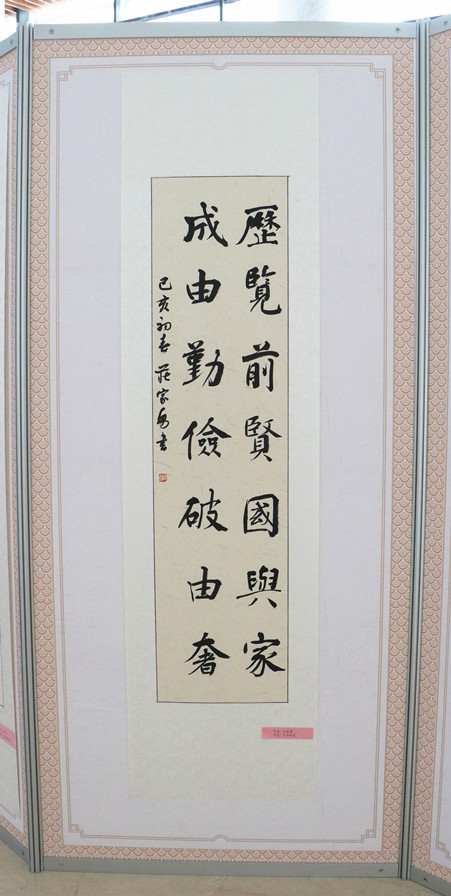 歷覽前賢國與家
成由勤儉破由奢
己亥初春 莊家書